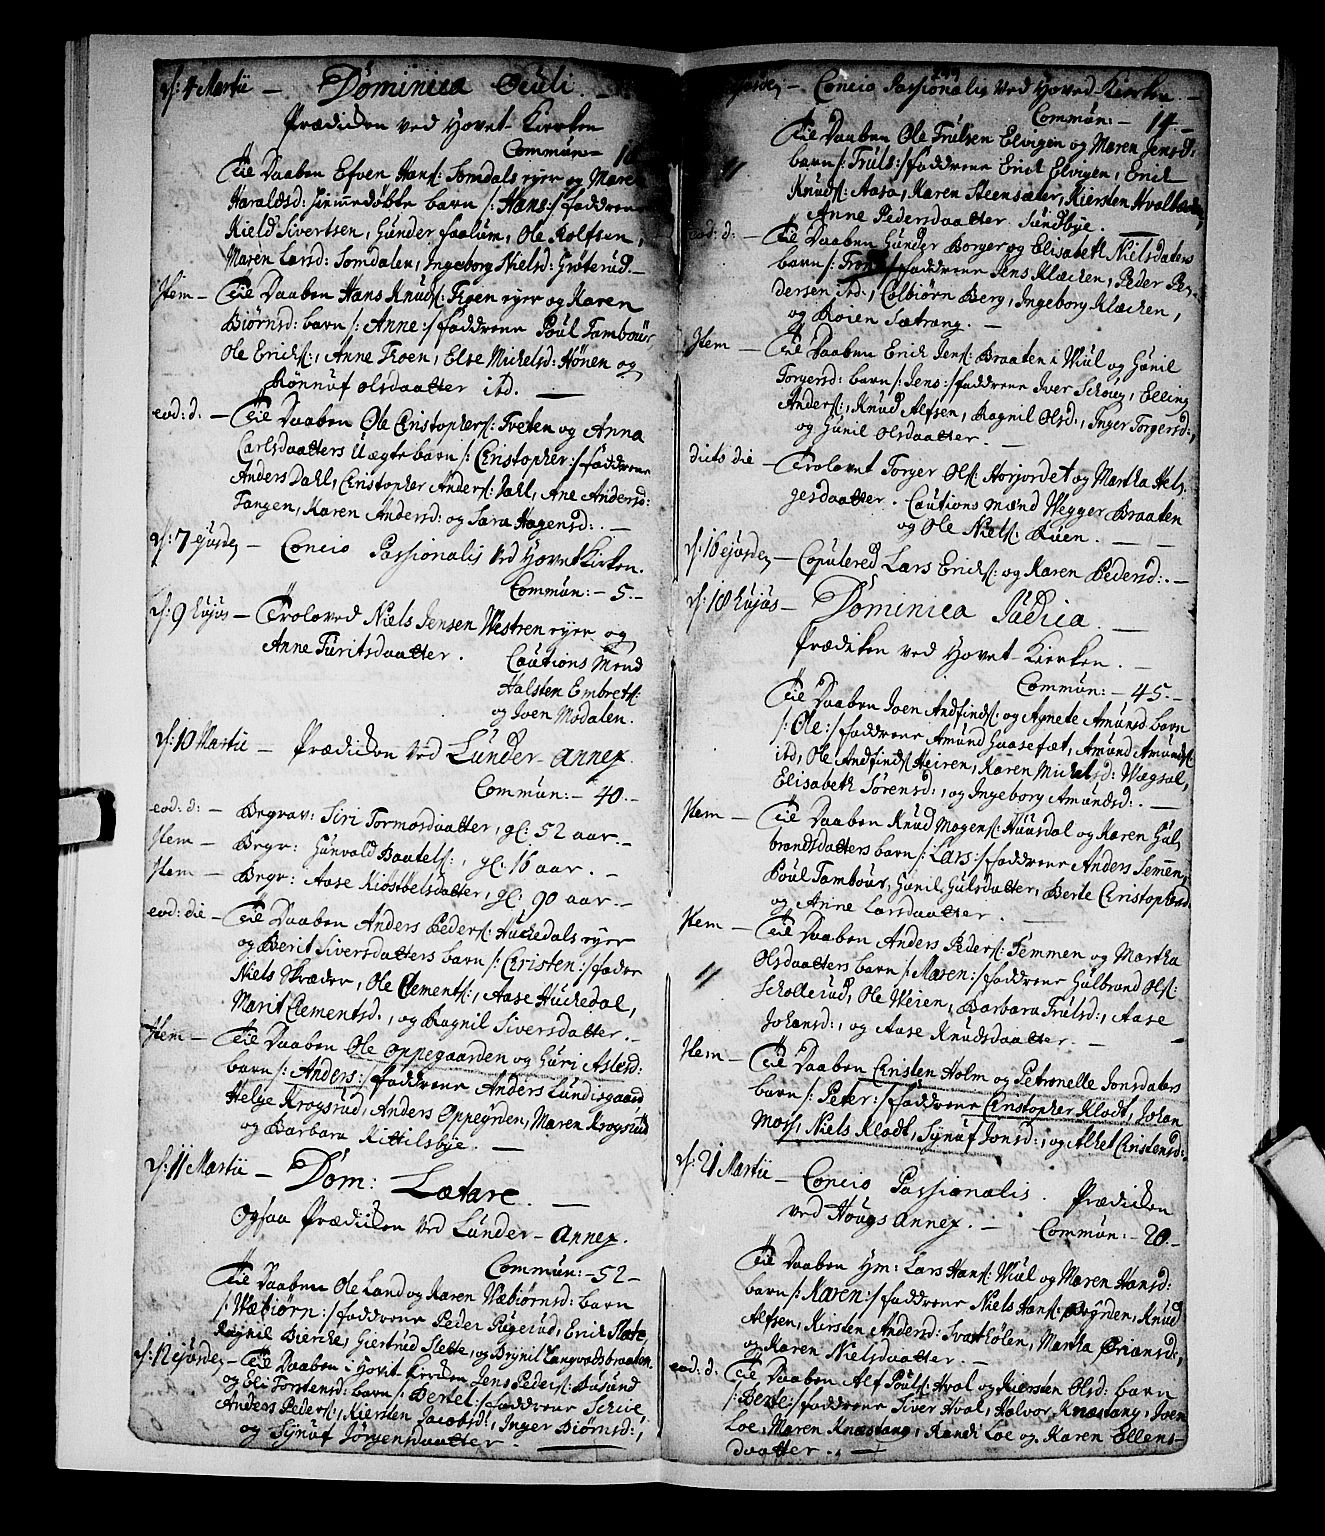 d: 4 Martii — Dominica Oculi. —
Prædiken ved Hovet-Kierken
Commun: — 16
Til Daaben Efven Hans: Somdals eyer og Maren
Haraldsd: hiemmedøbte barn /: Hans :/ faddrene
Kield Sivertsen, Gunder Faalum, Ole Rolfsen,
Maren Larsd: Somdalen, Ingeborg Nielsd: Grøterud. —
Item — Til Daaben Hans Knuds: Froen eyer og Karen
Biørnsd: barn /: Anne :/ faddrene Poul Tambour,
Ole Erichs:, Anne Froen, Else Michelsd: Hønen og
Rønnuf Olsdaatter ibd. —
eod: d: — Til Daaben Ole Christophers: Tveten og Anna
Carlsdaatters Uægte barn /: Christopher :/ faddrene
Anders Dahl, Christopher Anders: Dahl, Ane Andersd:
Tangen, Karen Andersd: og Sara Hagensd: . —
d: 7 ejusdem — Concio Passionalis ved Hovet Kirken.
Commun: — 5. —
d: 9 hujus — Troloved Niels Jensen Westren eyer og
Anne Turitsdaatter. Cautions Mend
Halsten Embrets:
og Joen Modalen.
d: 10 Martii — Prædiken ved Lunder-Annex.
Commun: — 40. —
eod: d: — Begrav: Siri Tormosdaatter, gl: 52 aar. —
Item — Begr: Gunvald Baatels:, gl: 16 aar. —
Item — Begr: Aase Kiostelsdatter, gl: 90 aar. —
eod: die — Til Daaben Anders Peders: Huchedals eyer
og Berit Siversdatters barn /: Christen :/ fadre
Niels Skræder, Ole Clements:, Aase Huchedal,
Marit Clementsd:, og Ragnil Siversdatter. —
Item — Til Daaben Ole Oppegaarden og Guri Aslesd:
barn /: Anders :/ faddrene Anders Lundisgaard
Helge Krogsrud, Anders Oppegrden, Maren Krogsrud
og Barbara Kittilsbye. —
d: 11 Martii — Dom: Lætare. —
Ogsaa Prædiken ved Lunder-Annex.
Commun: — 52 —
Til Daaben Ole Land og Karen Wæbiørnsd: barn
/: Wæbiørn :/ faddrene Peder Rigerud, Erich Slætte,
Ragnil Bierche, Giertrud Slette, og Brynil Langvadsbraaten
d: 12 ejusdem — Til Daaben i Hovit Kirken Jens Peders: Busund
og Eli Torstensd: barn /: Bertel :/ faddrene Schue,
Anders Peders:, Kiersten Jacobsd:, Inger Biørnsd:,
og Synuf Jørgensdaatter. —
ejusdem — Concio Passionalis ved Hoved-Kierken. —
Commun: — 14 —
Til Daaben Ole Trulsen Elvigen og Maren Jensd:
barn /: Truls :/ faddrene Erich Elvigen, Erich
Knuds: Aasa, Karen Steensæter, Kiersten Hvalbæk,
Anne Pedersdaatter Sundbye. —
eod: d: — Til Daaben Gunder Borger og Elisabeth Nielsdaters
barn /: :/ faddrene Jens Klæcken, Peder Pe-
dersen ibd:, Colbiørn Berg, Ingeborg Klæcken,
og Roren Sætrang. —
Item — Til Daaben Erich Jens: Braaten i Wiul og Gunil
Torgersd: barn /: Jens :/ faddrene Iver Schoug, Elling
Anders:, Knud Alfsen, Ragnil Olsd:, Inger Torgersd:,
og Gunil Olsdaatter. —
dicto die — Trolovet Torger Ols: Horjordet og Martha Hel-
gesdaatter. Cautions mænd Wegger Braaten
og Ole Niels: Buen. —
d: 16 ejusdem — Copulered Lars Erichs: og Karen Pedersd: . —
d: 18 hujus — Dominica Judica. —
Prædiken ved Hovet-Kierken. —
Commun: — 45. —
Til Daaben Joen Andfinds: og Agnete Amunsd: barn
/: Ole :/ faddrene Amund Gaasefæt, Amund Amunds:
ibd, Ole Andfinds: Heiren, Karen Michelsd: Wægsal,
Elisabeth Sørensd:, og Ingeborg Amundsd: . —
Item — Til Daaben Knud Mogens: Huusdal og Karen Gul-
brandsdatters barn /: Lars :/ faddrene Anders Semmen,
Poul Tambour, Gunil Gulsdatter, Berte Christophersd:
og Anne Larsdaatter. —
Item — Til Daaben Anders Peders: Femmen og Martha
Olsdaatters barn /: Maren :/ faddrene Gulbrand Ols:
Schollerud, Ole Weien, Barbara Trulsd:, Aase
Johansd:, og Aase Knudsdaatter. —
Item — Til Daaben Christen Holm og Petronelle Jonsdaters
barn /: Peter :/ faddrene Christopher Klodt, Johan
Mors, Niels Klodt, Synuf Jonsd:, og Alhet Christensd: . —
d: 21 Martii — Concio Passionalis. Prædiken
ved Hougs Annex. — Commun: — 20. —
Til Daaben Hm: Lars Hans: Wiul og Maren Hansd:
barn /: Karen :/ faddrene Niels Hans: Bygrden, Knud
Alfsen, Kirsten Andersd: Svarthølen, Martha Briansd:,
og Karen Nielsdaatter. —
eod: d: — Til Daaben Alf Pouls: Hval og Kiersten Olsd: barn
/: Berthe :/ faddrene Siver Hval, Halvor Knæstang, Joen
Loe, Maren Knæstang, Randi Loe og Karen Ellens-
daatter. —